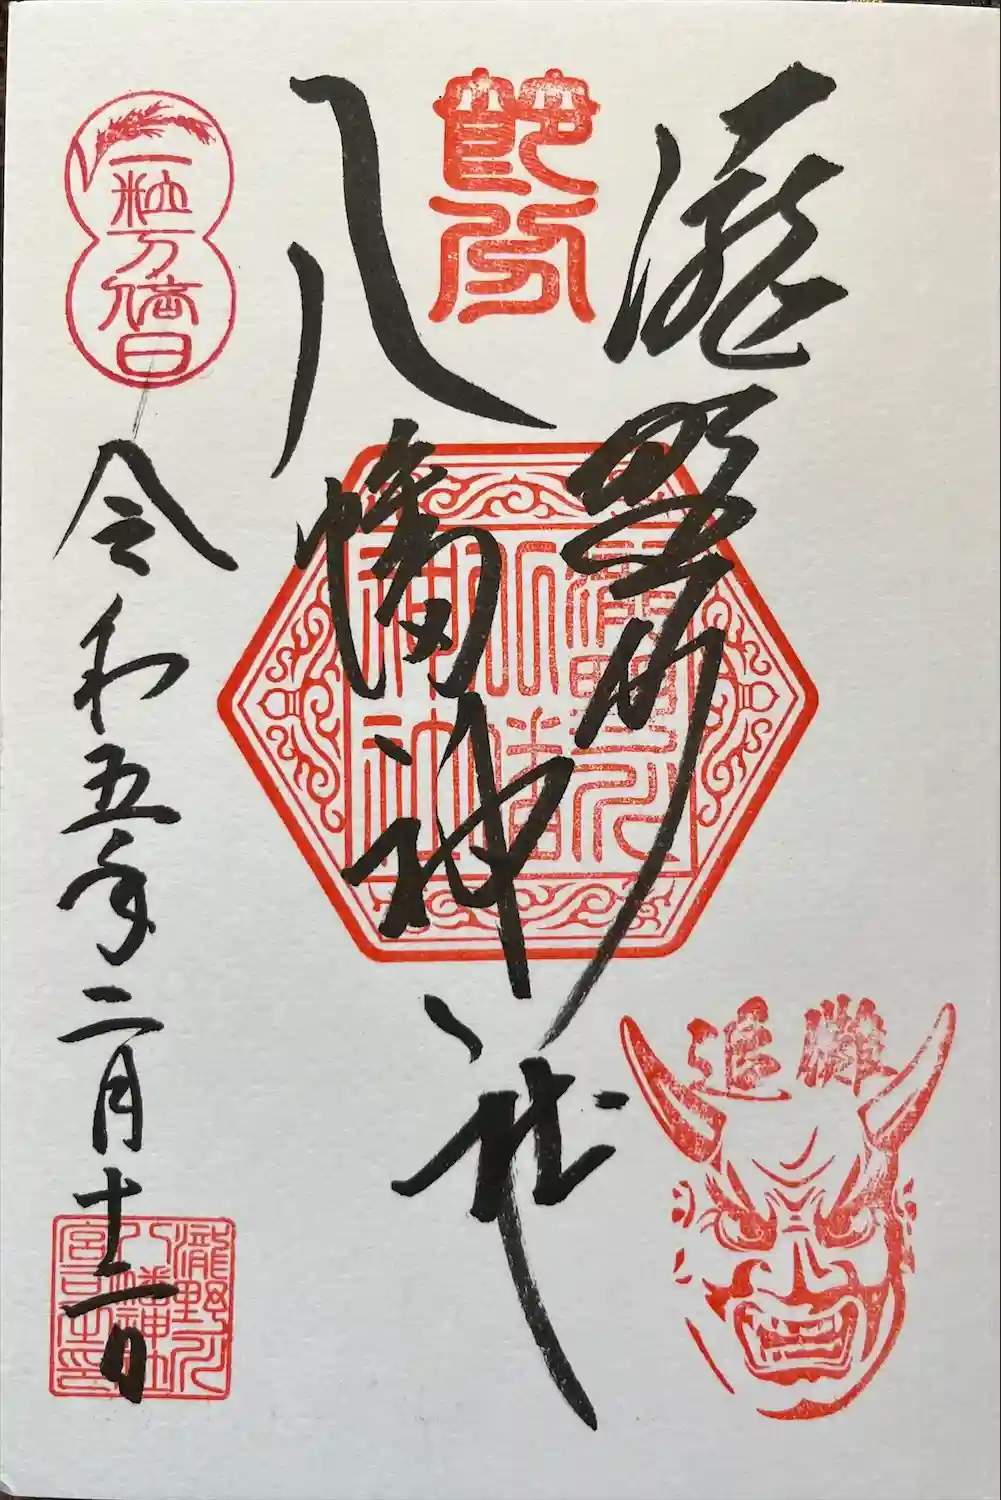 瀧野川
八幡神社
節分
瀧野川
八幡
神社
追儺
一粒万倍日
令和五年二月十一日
瀧野川
八幡神社
宮司之印